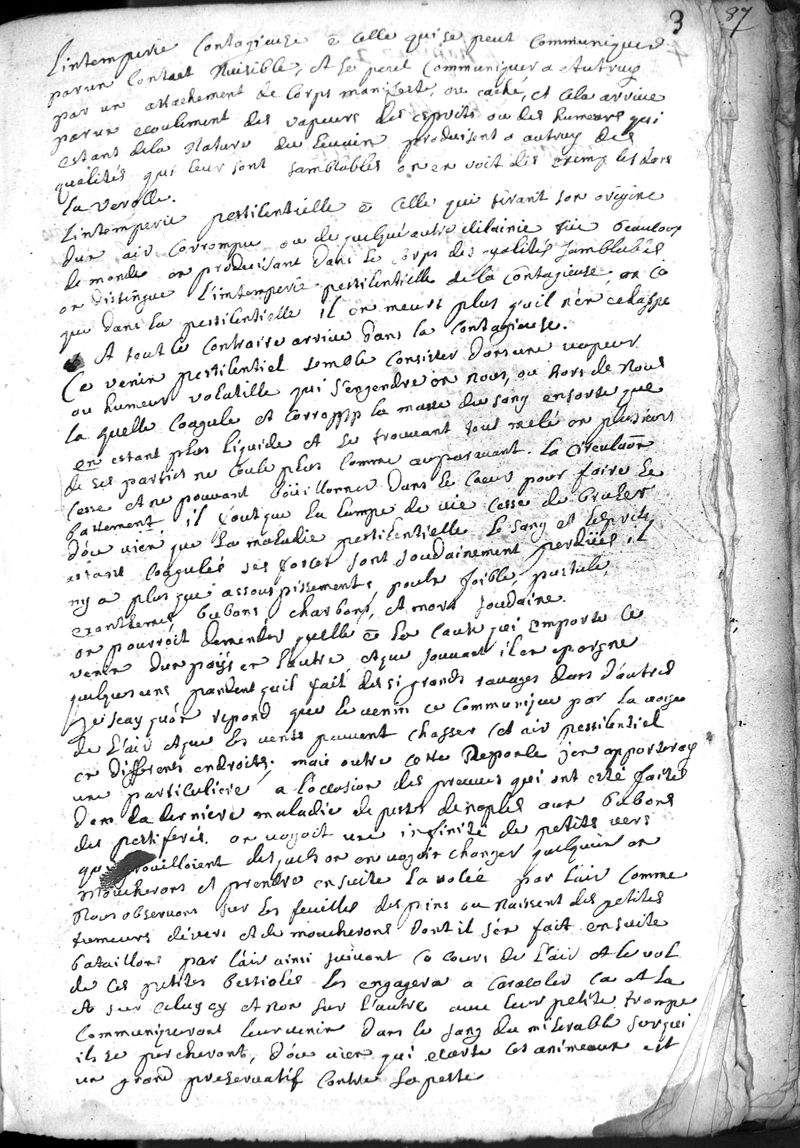 3 87
L'intemperie Contagieuse ē Celle qui se peut Communiquer
par un Contact Nuisible, et se peut Communiquer a Autruy
par un attachement de Corps manifeste, ou caché, et cela arrive
par un ecoulement des vapeurs des esprits ou des humeurs qui
estant de la Nature du Levain produisent a autruy des
qualités qui leur sont samblables on en voit des exemples dans
La verolle.
L'intemperie pestilentielle ē Celle qui tirant son origine
d'un air Corrompu ou de quelque autre vilainie tüe beaucoup
de monde en produisant dans le Corps des qualités samblables
on distingue L'intemperie pestilentielle de la Contagieuse, en ce
que dans la pestilentielle il en meurt plus qu'il n'en rechappe
et tout le Contraire arrive dans la Contagieuse.
Ce venin pestilentiel semble Consister dans une vapeur
ou humeur volatille qui s'engendre en nous, ou hors de nous
la quelle Coagule et Corrompt la masse du sang en sorte que
n'en estant plus liquide et se trouvant tout melé en plusieurs
de ses parties ne Coule plus Comme auparavant. La Circulaōn
Cesse et ne pouvant böüillonner dans le Cœur pour faire le
battement il faut que La lampe de vie Cesse de bruler
d'ou vient que La maladie pestilentielle Le sang et Les esprits
estant Coagulés ses forces sont soudainement perdües, il
n'y a plus que assoupissements, pouls foible, pustule,
exanthemes bubons, charbons, et mort soudaine.
on pourroit demander quelle ē La Cause qui emporte Ce
venin d'un païs en L'autre, et que souvent il en epargne
quelques uns pandent qu'il fait de si grands ravages dans d'autres
Je scay qu'on répond que le venin ce Communique par la voye
de L'air et que les vents peuvent chasser Cet air pestilentiel
en differents endroits; mais outre cette Reponse j'en apporteray
une particuliere a l'occasion des preuves qui ont eté faites
dans la derniere maladie de peste de naples aux bubons
des pestiferés. on voyoit une infinité de petits vers
qui grouilloient desquels on en voyoit changer quelqu'un en
moucherons et prendre ensuite la volée par l'air Comme
Nous observons sur les feuilles des pins ou naissent des petites
tumeurs de vers et de moucherons dont il s'en fait ensuite
bataillons par l'air ainsi suivant Ce Cours de L'air et le vol
de Ces petites bestioles Les engagera a Caracoler Ca et La
et sur Celuy cy et non sur l'autre avec leur petite trompe
Communiqueront leur venin dans le sang du miserable sur qui
ils se percheront, d'ou vien qui ecarte Ces animeaux est
un grand preservatif Contre La peste